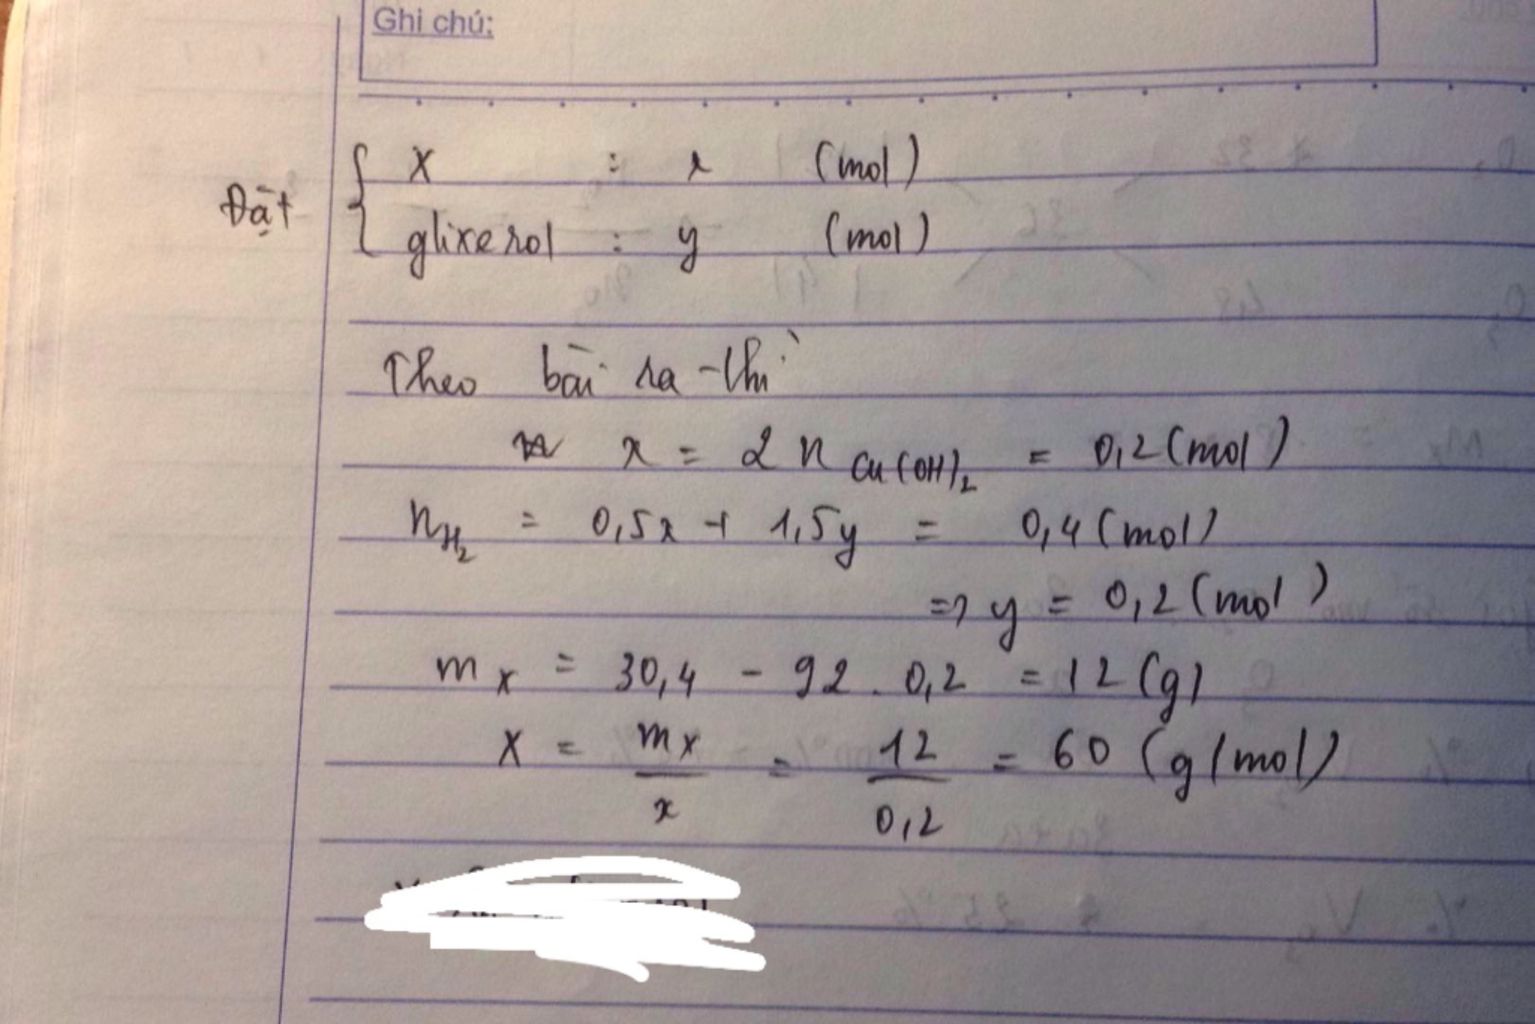 Ghi chú:
Đặt { X : x (mol)
glixerol : y (mol)
Theo bài ra thì
x = 2 n Cu(OH)₂ = 0,2 (mol)
n H₂ = 0,5x + 1,5y = 0,4 (mol)
=> y = 0,2 (mol)
m x = 30,4 - 92 . 0,2 = 12 (g)
X = mx / x = 12 / 0,2 = 60 (g/mol)